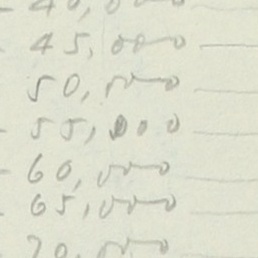 40,000
45,000
50,000
55,000
60,000
65,000
70,000